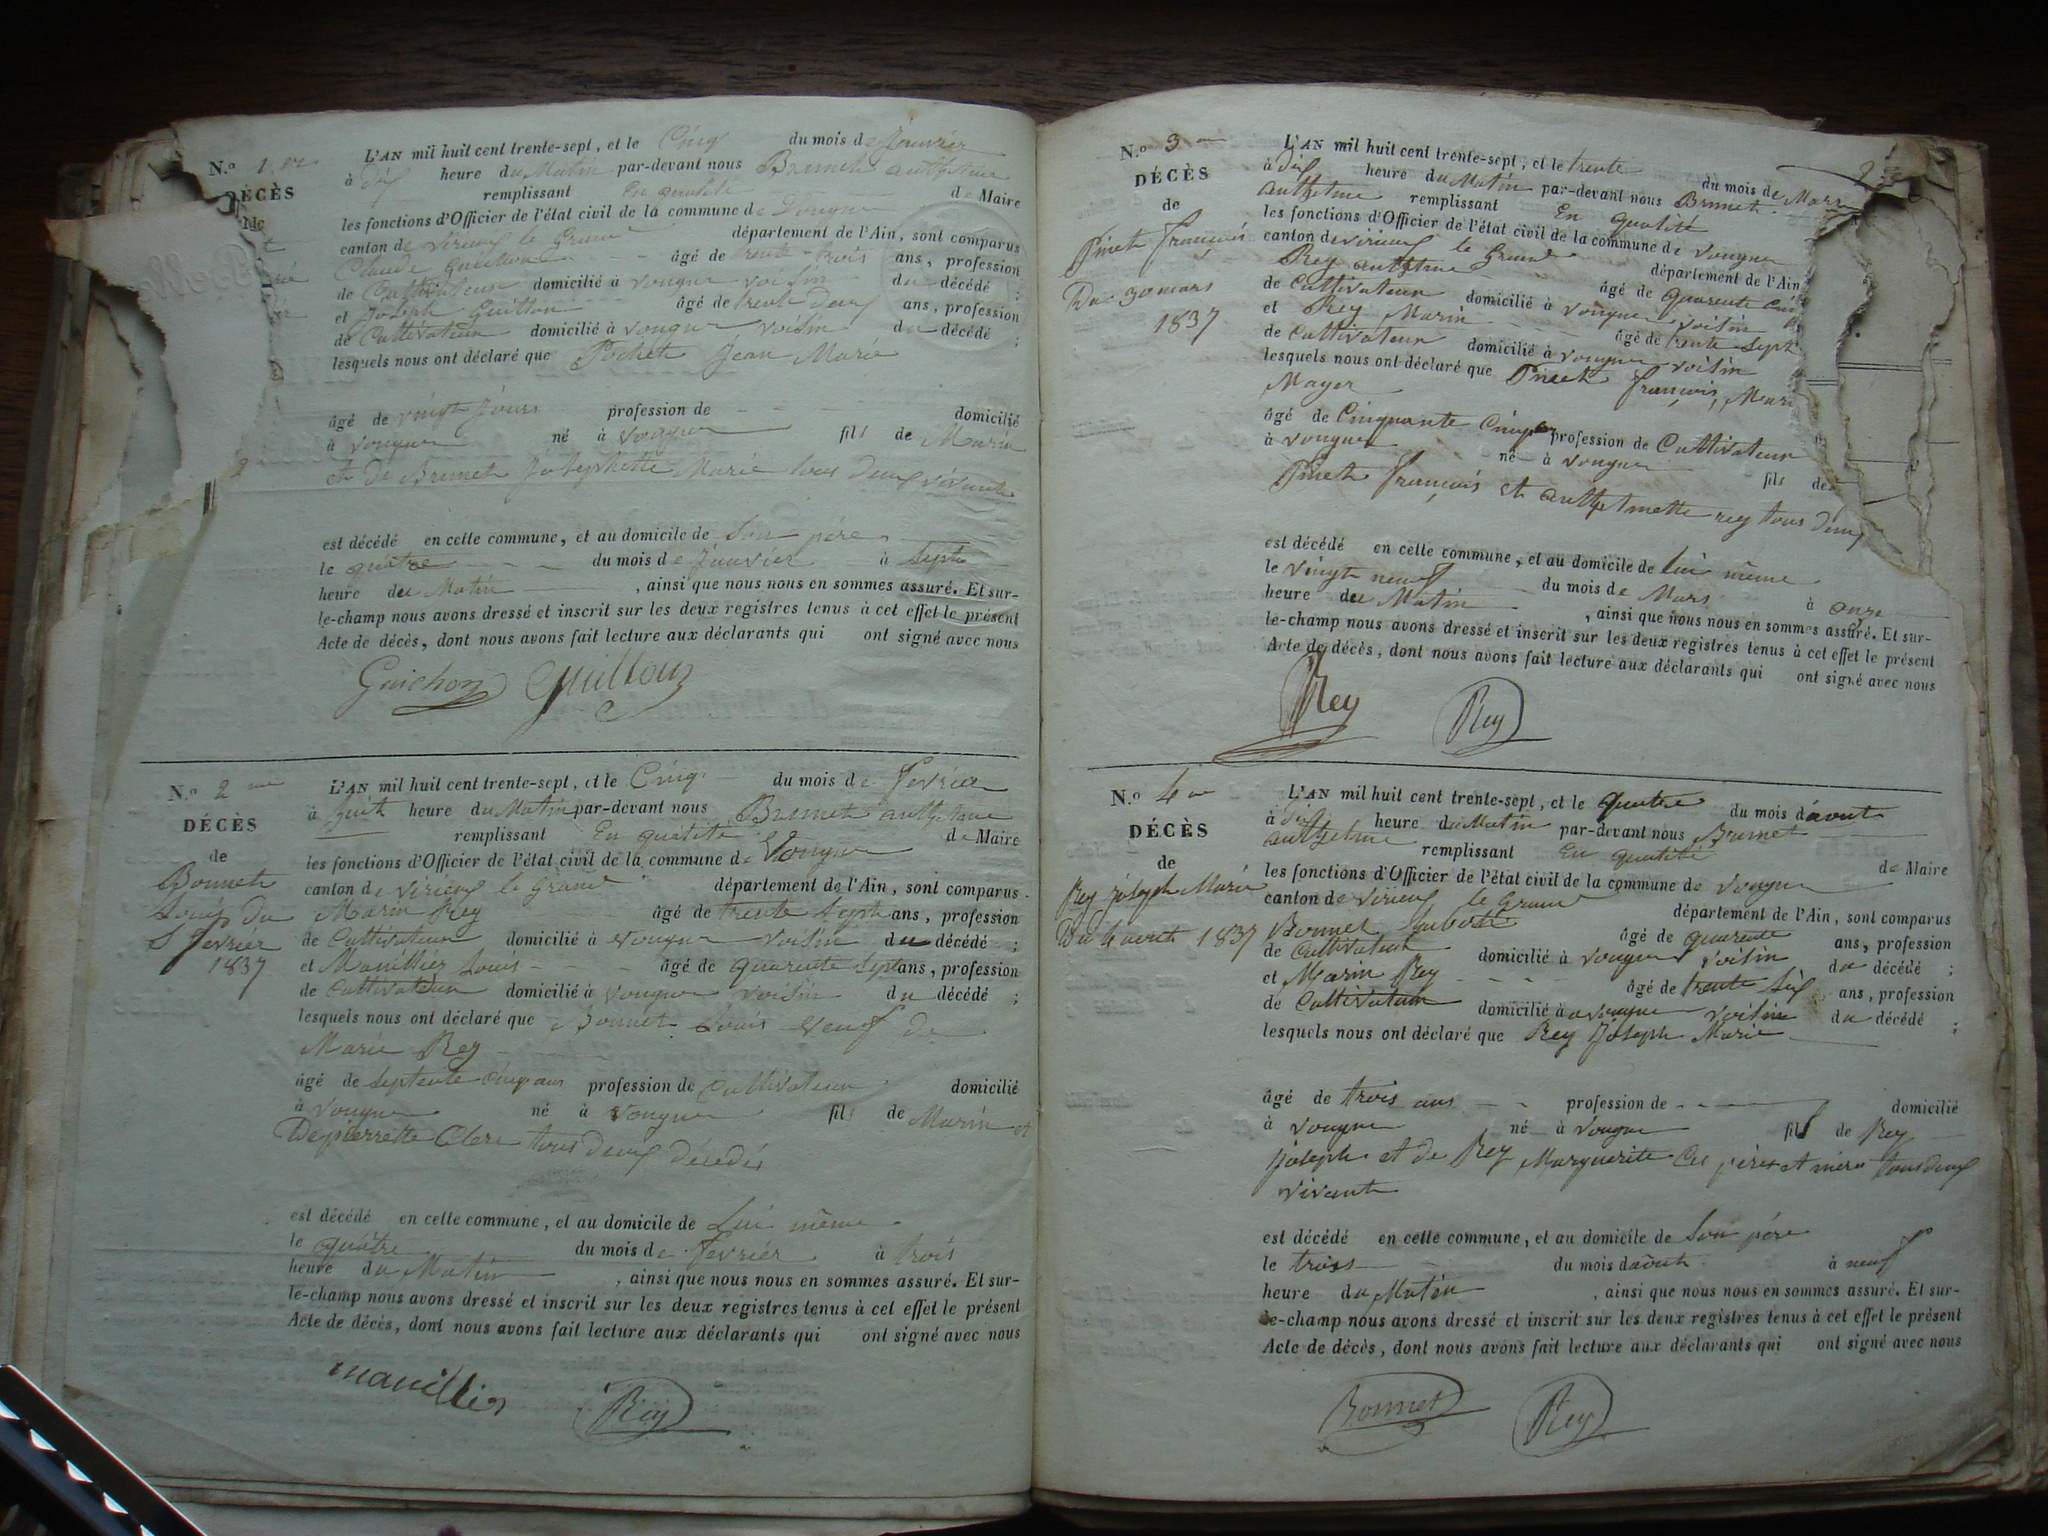 N.o 1.er
DÉCÈS
de
L'AN mil huit cent trente-sept, et le Cinq du mois de Janvier
à dix heure du Matin par-devant nous Brunet anthelme
remplissant En qualité de Maire
les fonctions d'Officier de l'état civil de la commune de Vongne
canton de virieux le Grand département de l'Ain, sont comparus
Claude âgé de trente-trois ans, profession
de Cultivateur domicilié à vongne voisin du décédé ;
et Joseph Guillon âgé de trente deux ans, profession
de Cultivateur domicilié à vongne voisin du décédé ;
lesquels nous ont déclaré que Pochet Jean Marie
âgé de vingt jours profession de - - - domicilié
à vongne né à vongne fils de Marin
et de Brunet Josephette Marie tous deux vivants
est décédé en cette commune, et au domicile de Son père
le quatre - - - du mois de Janvier à Sept
heure du Matin , ainsi que nous nous en sommes assuré. Et sur-
le-champ nous avons dressé et inscrit sur les deux registres tenus à cet effet le présent
Acte de décès, dont nous avons fait lecture aux déclarants qui ont signé avec nous
Guichon Guillon
N.o 2 me
DÉCÈS
de
Bonnet
Louis du
5 fevrier
1837
L'AN mil huit cent trente-sept, et le Cinq du mois de fevrier
à huit heure du Matin par-devant nous Brunet anthelme
remplissant En qualité de Maire
les fonctions d'Officier de l'état civil de la commune de Vongne
canton de virieux le Grand département de l'Ain, sont comparus
Marin Rey âgé de trente Sept ans, profession
de Cultivateur domicilié à vongne voisin du décédé ;
et Manillier Louis - - - âgé de quarente Sept ans, profession
de Cultivateur domicilié à vongne voisin du décédé ;
lesquels nous ont déclaré que Bonnet Louis veuf de
Marie Rey
âgé de Septente Cinq ans profession de Cultivateur domicilié
à vongne né à vongne fils de Marin et
De pierrette Clerc tous deux décedés
est décédé en cette commune, et au domicile de Lui même
le quatre du mois de fevrier à trois
heure du Matin , ainsi que nous nous en sommes assuré. Et sur-
le-champ nous avons dressé et inscrit sur les deux registres tenus à cet effet le présent
Acte de décès, dont nous avons fait lecture aux déclarants qui ont signé avec nous
manillier Rey
N.o 3 me
DÉCÈS
de
Pinet françois
Du 30 mars
1837
L'AN mil huit cent trente-sept, et le trente du mois de Mars
à dix heure du Matin par-devant nous Brunet
anthelme remplissant En qualité
les fonctions d'Officier de l'état civil de la commune de vongne
canton de virieux le Grand département de l'Ain
Rey anthelme âgé de quarente
de Cultivateur domicilié à vongne voisin
et Rey Marin - - - âgé de trente Sept
de Cultivateur domicilié à vongne voisin
lesquels nous ont déclaré que Pinet françois, Mari
Mayer
âgé de Cinquante Cinq profession de Cultivateur
à vongne né à vongne fils de
Pinet françois et anthelmette rey tous deux
est décédé en cette commune, et au domicile de Lui même
le vingt neuf du mois de Mars à onze
heure du Matin , ainsi que nous nous en sommes assuré. Et sur-
le-champ nous avons dressé et inscrit sur les deux registres tenus à cet effet le présent
Acte de décès, dont nous avons fait lecture aux déclarants qui ont signé avec nous
Rey Rey
N.o 4 me
DÉCÈS
de
Rey joseph Marie
Du 4 août 1837
L'AN mil huit cent trente-sept, et le quatre du mois d'aout
à dix heure du Matin par-devant nous Brunet
anthelme remplissant En qualité de Maire
les fonctions d'Officier de l'état civil de la commune de vongne
canton de virieux le Grand département de l'Ain, sont comparus
Bonnet âgé de quarente ans, profession
de Cultivateur domicilié à vongne voisin du décédé ;
et Marin Rey - - - âgé de trente Six ans, profession
de Cultivateur domicilié à vongne voisin du décédé ;
lesquels nous ont déclaré que Rey Joseph Marie
âgé de trois ans - - profession de - - domicilié
à vongne né à vongne fils de Rey
joseph et de Rey Marguerite Ces pères et mères tous deux
vivants
est décédé en cette commune, et au domicile de Son père
le trois du mois d'août à neuf
heure du Matin , ainsi que nous nous en sommes assuré. Et sur-
le-champ nous avons dressé et inscrit sur les deux registres tenus à cet effet le présent
Acte de décès, dont nous avons fait lecture aux déclarants qui ont signé avec nous
Bonnet Rey